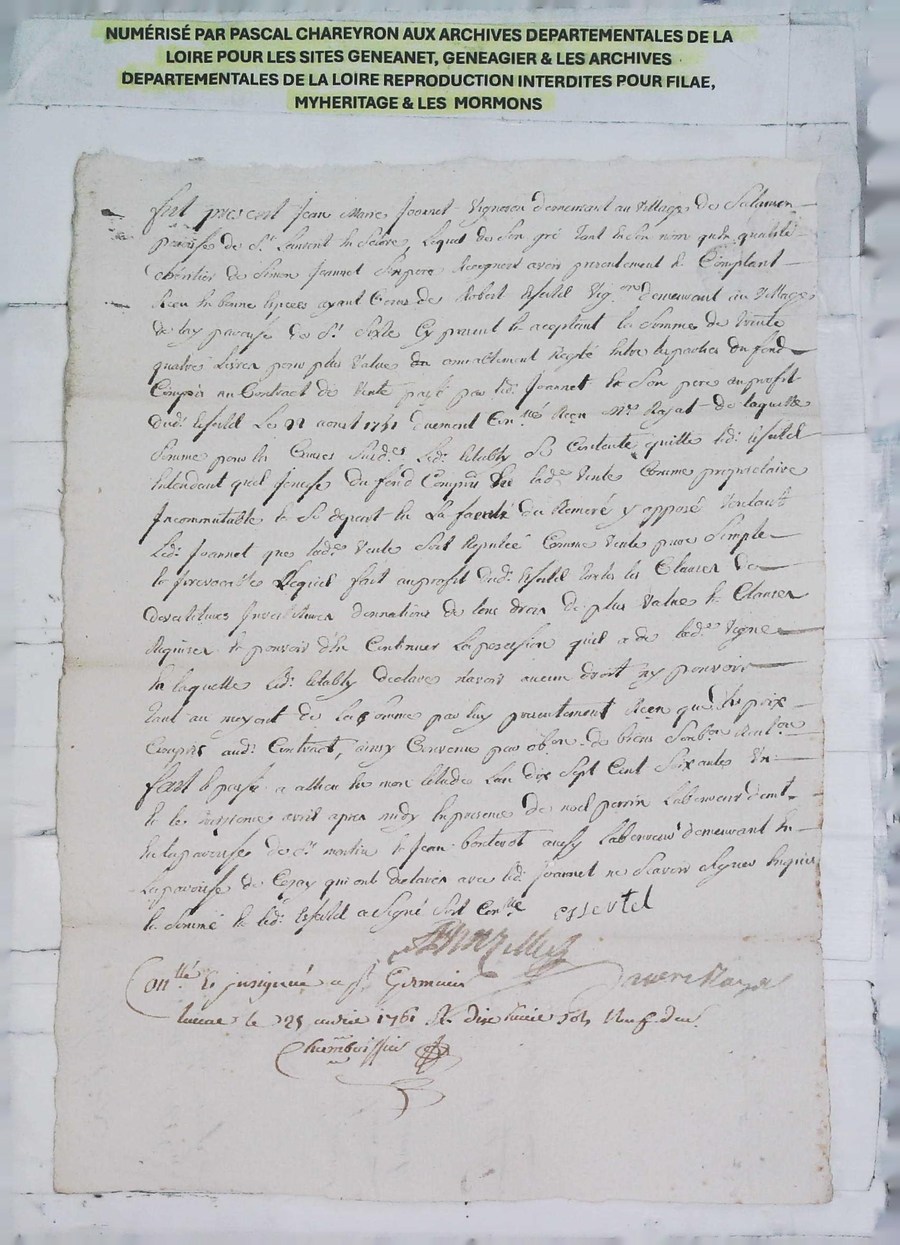 NUMÉRISÉ PAR PASCAL CHAREYRON AUX ARCHIVES DEPARTEMENTALES DE LA
LOIRE POUR LES SITES GENEANET, GENEAGIER & LES ARCHIVES
DEPARTEMENTALES DE LA LOIRE REPRODUCTION INTERDITES POUR FILAE,
MYHERITAGE & LES MORMONS
fut present Jean Marie Joannet Vigneron demeurant au Village de
paroisse de St Laurent lequel de son gré tant en son nom qu'en qualité
d'héritier de Simon Joannet son pere Recognoit avoir presentement et Comptant
Receu en bonne especes ayant Cours de Robert Esertel Vig.on demeurant au Village
de paroisse de St Sixte Cy present et aceptant la Somme de trente
quatre Livres pour plus Value Reglé entre les parties du fond
Compris au Contract de Vente passé par led. Joannet et Son pere au profit
dud. Esertel Le 22 aout 1751 duement Con.llé Reçu Me de laquelle
Somme pour les Causes Susd.es Led. Etably Se Contente quitte led. Esertel
Entendant quil jouisse du fond Compris lad.e Vente Comme proprietaire
Incommutable et Se depart de La faculté du Remeré y apposé Voulant
Led. Joannet que lad.e Vente Soit Reputée Comme Vente pure Simple
et Irrevocable Lequel fait au profit dud. Esertel toutes les Clauses de
devestitures Investitures donnations de tous droits de plus Value et Clauses
Requises et pouvoir d'En Continuer La possession quil a de lad.e Vigne
En laquelle led. Etably declare n'avoir aucun droit ny pouvoir
tant au moyent de la Somme par luy presentement Reçue que du prix
Compris aud. Contract, ainsy Convenu par ob.on de biens Soub.on Ren.on
fait et passé a mon Etude L'an dix Sept Cent Soixante Un
et le avril apres midy En presence de noel perrin Laboureur demt
En la paroisse de St martin et Jean aussy Laboureur demeurant En
La paroisse de Cezay qui ont declarés avec led. Joannet ne Scavoir Signer Enquis
et Sommé et led. Esertel a Signé Soit Con.llé essertel
Con.llé & insignué a St Germain
Laval le 25 avril 1761 R. dix huit Sols Neuf den.